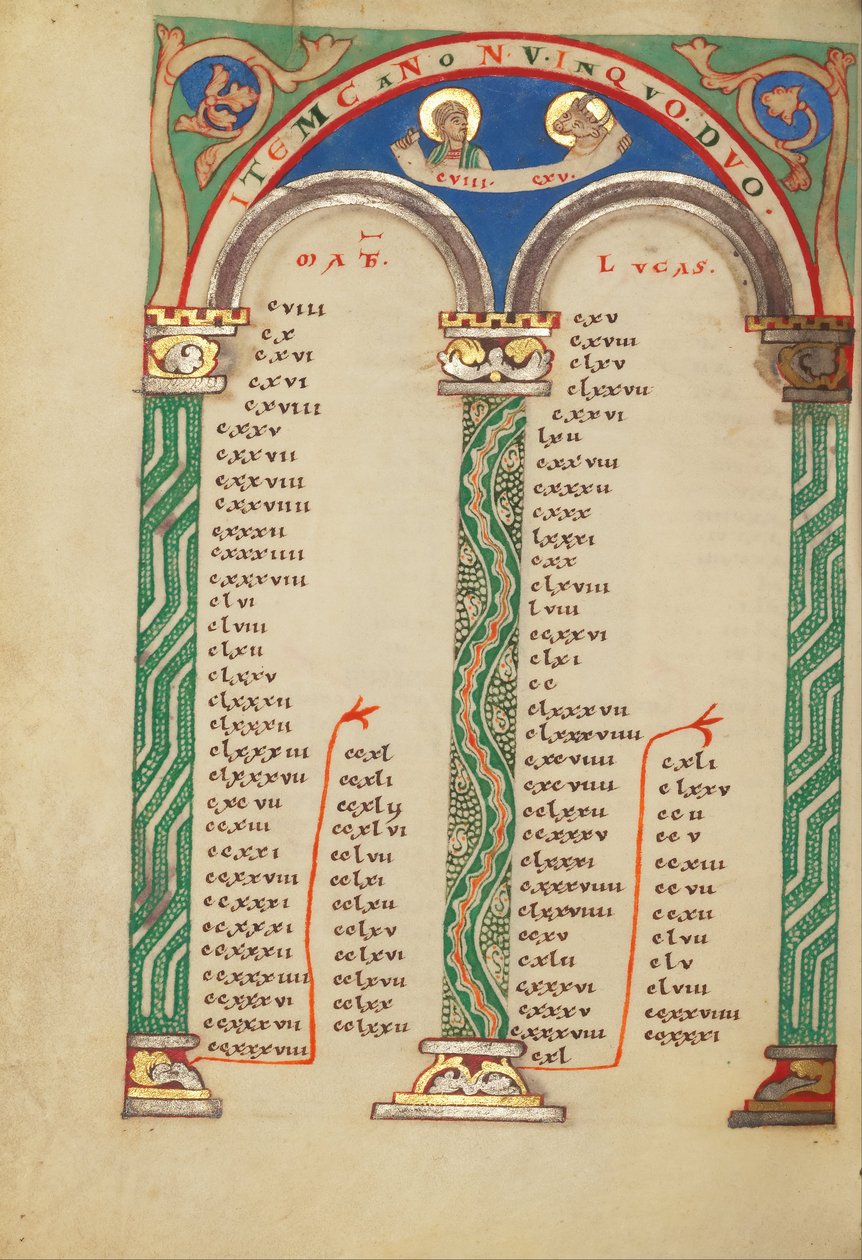 ITEM CANON·V·INQVO·DVO·
CVIII· CXV·
MATH·
LVCAS·
cviii
cx
cxvi
cxvi
cxviii
cxxv
cxxvii
cxxviii
cxxviiii
cxxxii
cxxxiiii
cxxxviii
clvi
clviii
clxii
clxxv
clxxxii
clxxxii
clxxxiiii
clxxxvii
cxcvii
ccxiii
ccxxi
ccxxviii
ccxxxi
ccxxxi
ccxxxii
ccxxxiiii
ccxxxvi
ccxxxvii
ccxxxviii
ccxl
ccxli
ccxlij
ccxlvi
cclvii
cclxi
cclxii
cclxv
cclxvi
cclxvii
cclxx
cclxxii
cxv
cxviii
clxv
clxxvii
cxxvi
lxii
cxxviii
cxxxii
cxxx
lxxxi
cxx
clxviii
lviii
ccxxvi
clxi
cc
clxxxvii
clxxxviiii
cxcviiii
cxcviiii
cclxxii
ccxxxv
clxxxi
cxxxviiii
clxxviiii
ccxv
cxlii
cxxxvi
cxxxv
cxxxviii
cxl
cxli
clxxv
ccii
ccv
ccxiii
ccvii
ccxii
clvii
clv
clviii
ccxxviiii
ccxxxi